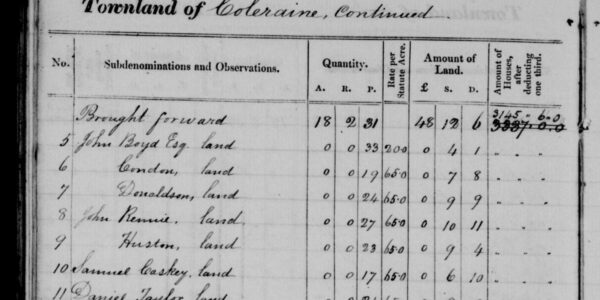 Townland of Coleraine, Continued
No. Subdenominations and Observations. Quantity. Rate per Statute Acre. Amount of Land. Amount of Houses, after deducting one third.
A. R. P. £ S. D.
Brought forward 18 2 31 48 12 6 3145 " 6.0
3337.0.0
5 John Boyd Esq. land 0 0 33 200 0 4 1 " " "
6 Condon, land 0 0 19 650 0 7 8 " " "
7 Donaldson, land 0 0 24 650 0 9 9 " " "
8 John Rennie, land 0 0 27 650 0 10 11 " " "
9 Huston, land 0 0 23 650 0 9 4 " " "
10 Samuel Caskey, land 0 0 17 650 0 6 10 " " "
11 Daniel Taylor, land